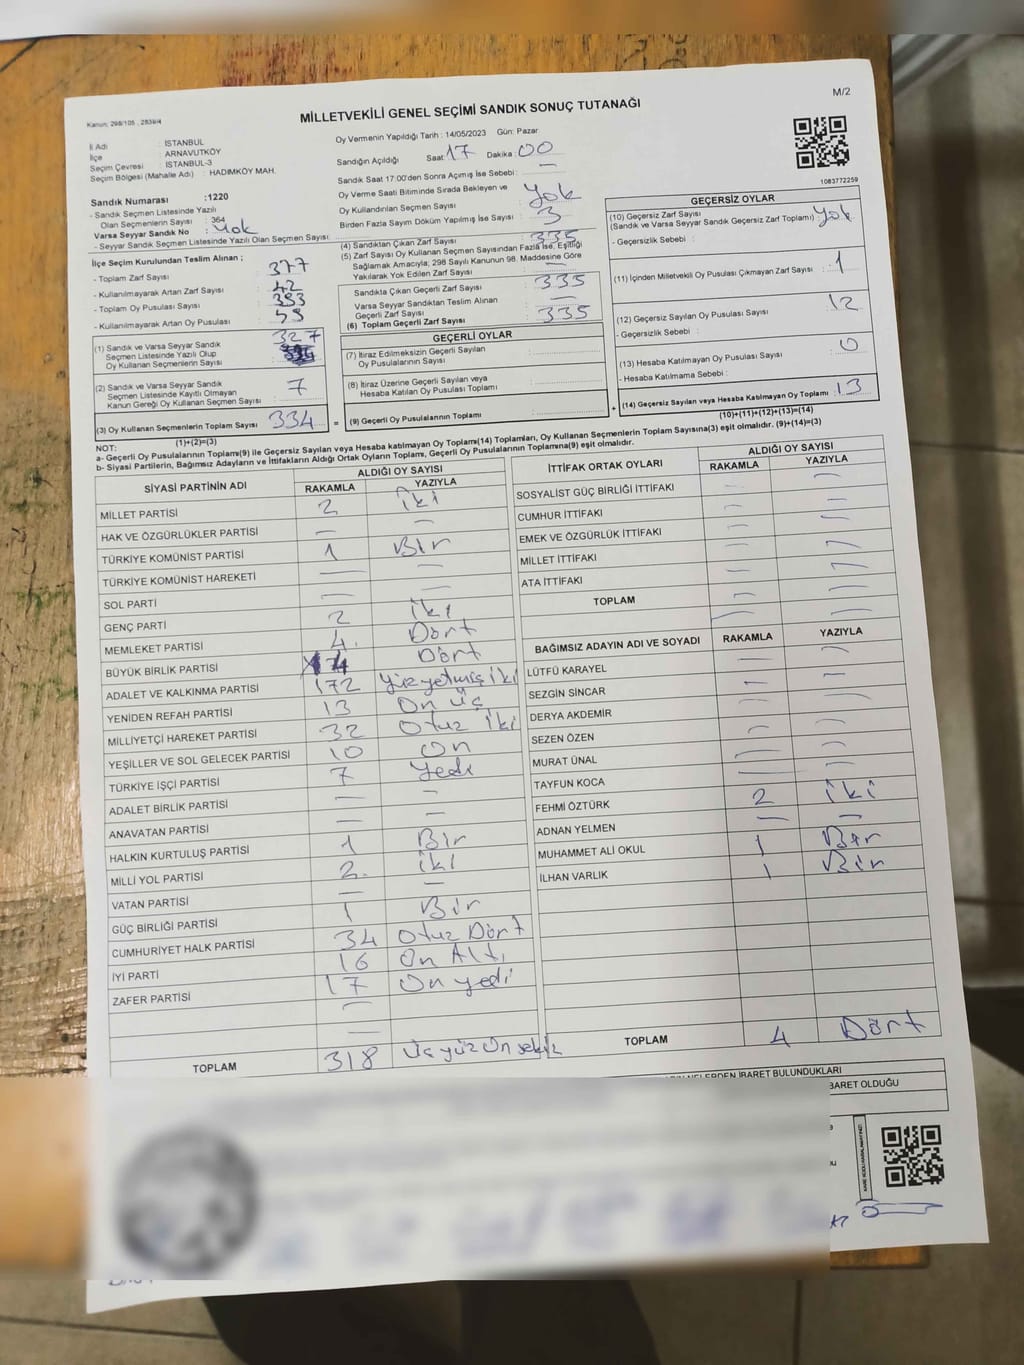 M/2
Kanun: 298/105 , 2839/4
MİLLETVEKİLİ GENEL SEÇİMİ SANDIK SONUÇ TUTANAĞI
İl Adı : İSTANBUL
İlçe : ARNAVUTKÖY
Seçim Çevresi : İSTANBUL-3
Seçim Bölgesi (Mahalle Adı) : HADIMKÖY MAH.
Oy Vermenin Yapıldığı Tarih : 14/05/2023 Gün: Pazar
Sandığın Açıldığı Saat 17 Dakika : 00
Sandık Saat 17:00'den Sonra Açımış İse Sebebi : —
Oy Verme Saati Bitiminde Sırada Bekleyen ve
Oy Kullandırılan Seçmen Sayısı : Yok
Birden Fazla Sayım Döküm Yapılmış İse Sayısı : 3
1083772259
Sandık Numarası :1220
- Sandık Seçmen Listesinde Yazılı
Olan Seçmenlerin Sayısı : 364
Varsa Seyyar Sandık No : Yok
- Seyyar Sandık Seçmen Listesinde Yazılı Olan Seçmen Sayısı
İlçe Seçim Kurulundan Teslim Alınan ;
- Toplam Zarf Sayısı : 377
- Kullanılmayarak Artan Zarf Sayısı : 42
- Toplam Oy Pusulası Sayısı : 393
- Kullanılmayarak Artan Oy Pusulası :
(1) Sandık ve Varsa Seyyar Sandık
Seçmen Listesinde Yazılı Olup
Oy Kullanan Seçmenlerin Sayısı : 327
(2) Sandık ve Varsa Seyyar Sandık
Seçmen Listesinde Kayıtlı Olmayan
Kanun Gereği Oy Kullanan Seçmen Sayısı : 7
(3) Oy Kullanan Seçmenlerin Toplam Sayısı : 334
(1)+(2)=(3)
(4) Sandıktan Çıkan Zarf Sayısı : 335
(5) Zarf Sayısı Oy Kullanan Seçmen Sayısından Fazla İse, Eşitliği
Sağlamak Amacıyla; 298 Sayılı Kanunun 98. Maddesine Göre
Yakılarak Yok Edilen Zarf Sayısı : —
Sandıkta Çıkan Geçerli Zarf Sayısı : 335
Varsa Seyyar Sandıktan Teslim Alınan
Geçerli Zarf Sayısı : —
(6) Toplam Geçerli Zarf Sayısı : 335
GEÇERLİ OYLAR
(7) İtiraz Edilmeksizin Geçerli Sayılan
Oy Pusulalarının Sayısı :
(8) İtiraz Üzerine Geçerli Sayılan veya
Hesaba Katılan Oy Pusulası Toplamı :
= (9) Geçerli Oy Pusulalarının Toplamı : +
GEÇERSİZ OYLAR
(10) Geçersiz Zarf Sayısı
(Sandık ve Varsa Seyyar Sandık Geçersiz Zarf Toplamı) : Yok
- Geçersizlik Sebebi :
(11) İçinden Milletvekili Oy Pusulası Çıkmayan Zarf Sayısı : 1
(12) Geçersiz Sayılan Oy Pusulası Sayısı : 12
- Geçersizlik Sebebi :
(13) Hesaba Katılmayan Oy Pusulası Sayısı : 0
- Hesaba Katılmama Sebebi :
(14) Geçersiz Sayılan veya Hesaba Katılmayan Oy Toplamı : 13
(10)+(11)+(12)+(13)=(14)
NOT:
a- Geçerli Oy Pusulalarının Toplamı(9) ile Geçersiz Sayılan veya Hesaba katılmayan Oy Toplamı(14) Toplamları, Oy Kullanan Seçmenlerin Toplam Sayısına(3) eşit olmalıdır. (9)+(14)=(3)
b- Siyasi Partilerin, Bağımsız Adayların ve İttifakların Aldığı Ortak Oyların Toplamı, Geçerli Oy Pusulalarının Toplamına(9) eşit olmalıdır.
SİYASİ PARTİNİN ADI
ALDIĞI OY SAYISI
RAKAMLA YAZIYLA
MİLLET PARTİSİ 2 iki
HAK VE ÖZGÜRLÜKLER PARTİSİ — —
TÜRKİYE KOMÜNİST PARTİSİ 1 Bir
TÜRKİYE KOMÜNİST HAREKETİ — —
SOL PARTİ — —
GENÇ PARTİ 2 iki
MEMLEKET PARTİSİ 4 Dört
BÜYÜK BİRLİK PARTİSİ 4 Dört
ADALET VE KALKINMA PARTİSİ 172 Yüzyetmişiki
YENİDEN REFAH PARTİSİ 13 On üç
MİLLİYETÇİ HAREKET PARTİSİ 32 Otuz iki
YEŞİLLER VE SOL GELECEK PARTİSİ 10 On
TÜRKİYE İŞÇİ PARTİSİ 7 Yedi
ADALET BİRLİK PARTİSİ — —
ANAVATAN PARTİSİ —
HALKIN KURTULUŞ PARTİSİ 1 Bir
MİLLİ YOL PARTİSİ 2 iki
VATAN PARTİSİ — —
GÜÇ BİRLİĞİ PARTİSİ 1 Bir
CUMHURİYET HALK PARTİSİ 34 Otuz Dört
İYİ PARTİ 16 On Altı
ZAFER PARTİSİ 17 On yedi
TOPLAM 318 Üç yüz On sekiz
İTTİFAK ORTAK OYLARI
ALDIĞI OY SAYISI
RAKAMLA YAZIYLA
SOSYALİST GÜÇ BİRLİĞİ İTTİFAKI — —
CUMHUR İTTİFAKI — —
EMEK VE ÖZGÜRLÜK İTTİFAKI — —
MİLLET İTTİFAKI — —
ATA İTTİFAKI — —
TOPLAM — —
BAĞIMSIZ ADAYIN ADI VE SOYADI RAKAMLA YAZIYLA
LÜTFÜ KARAYEL — —
SEZGİN SİNCAR — —
DERYA AKDEMİR — —
SEZEN ÖZEN — —
MURAT ÜNAL — —
TAYFUN KOCA — —
FEHMİ ÖZTÜRK 2 iki
ADNAN YELMEN — —
MUHAMMET ALİ OKUL 1 Bir
İLHAN VARLIK 1 Bir
TOPLAM 4 Dört
NELERDEN İBARET BULUNDUKLARI
BARET OLDUĞU